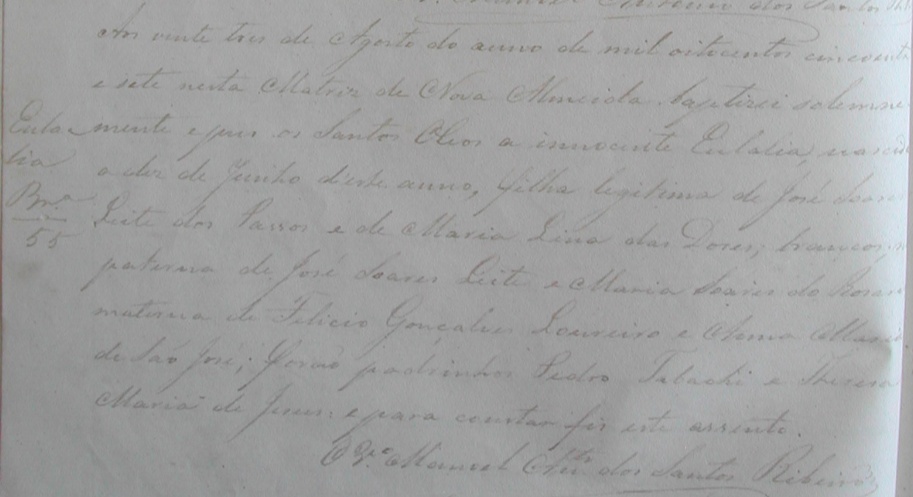 Manoel Antonio dos Santos
Aos vente tres de Agosto do anno de mil oitocentos cincoenta
e sete nesta Matriz de Nova Almeida baptizei solemne
Eula
mente e puz os Santos Oleos a innocente Eulalia, nascid
lia
a dez de Junho d'este anno, filha legitima de José Soares
Brca
Leite dos Passos e de Maria Lina das Dores, brancos,
55
paterna de José Soares Leite e Maria Soares do Rosar
materna de Felicio Gonçalves Loureiro e Anna Maria
de São José; forão padrinhos Pedro Tabachi e Thereza
Maria de Jesus: e para constar fiz este assento.
O Vo. Manoel Anto. dos Santos Ribeiro